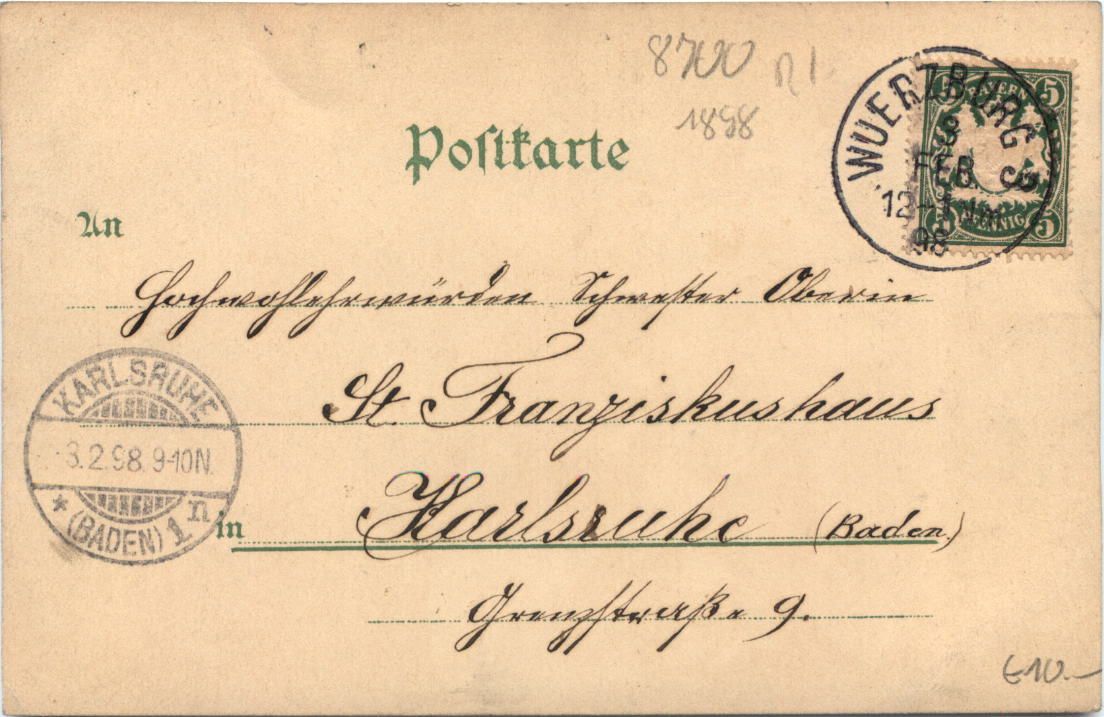 8700
1898
Postkarte
WUERZBURG
FEB
12-1
98
BAYERN
5 5
PFENNIG
5 5
An
Hochwohlehrwürden Schwester Oberin
St. Franziskushaus
KARLSRUHE
3.2.98.9-10N.
* (BADEN) 1 n
in Karlsruhe (Baden)
Grenzstraße 9.
€10.-